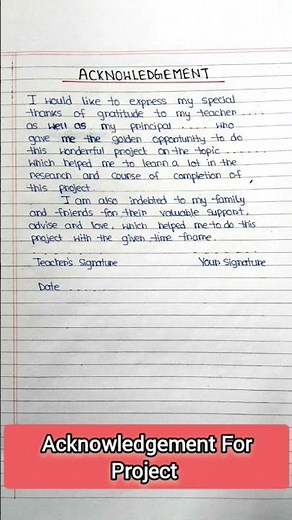 ACKNOWLEDGEMENT
I would like to express my special
thanks of gratitude to my teacher ....
as well as my principal ..... who
gave me the golden opportunity to do
this wonderful project on the topic .......
which helped me to learn a lot in the
research and course of completion of
this project.
I am also indebted to my family
and friends for their valuable support,
advise and love, which helped me to do this
project with the given time frame.
Teacher's Signature Your Signature
Date ........
Acknowledgement For
Project